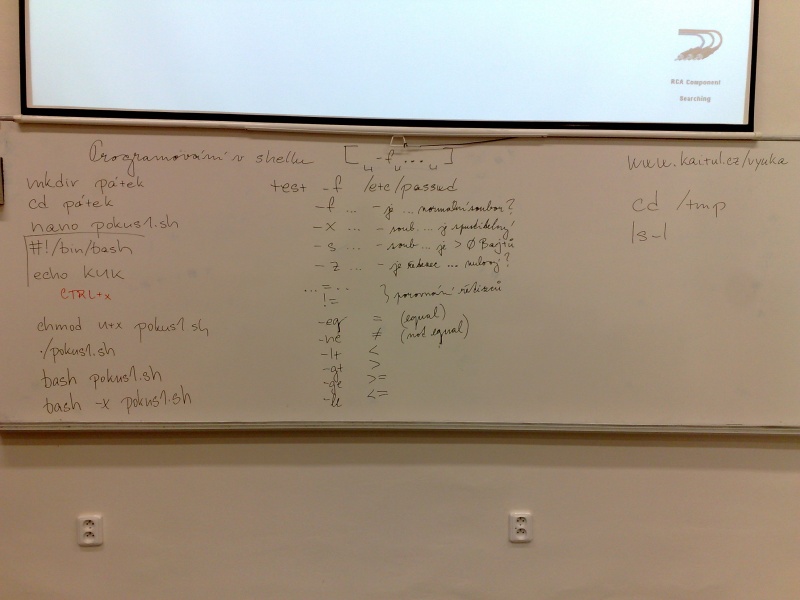 RCA Component
Searching
Programování v shellu
mkdir pátek
cd pátek
nano pokus1.sh
#!/bin/bash
echo KUK
CTRL+x
chmod u+x pokus1.sh
./pokus1.sh
bash pokus1.sh
bash -x pokus1.sh
[ -f ... ]
test -f /etc/passwd
-f ... - je ... normální soubor?
-x ... - soub ... je spustitelný
-s ... - soub ... je > 0 Bajtů
-z ... - je řetězec ... nulový?
... = ..
!= } porovnání řetězců
-eq = (equal)
-ne ≠ (not equal)
-lt <
-gt >
-ge >=
-le <=
www.kaitul.cz/vyuka
cd /tmp
ls -l